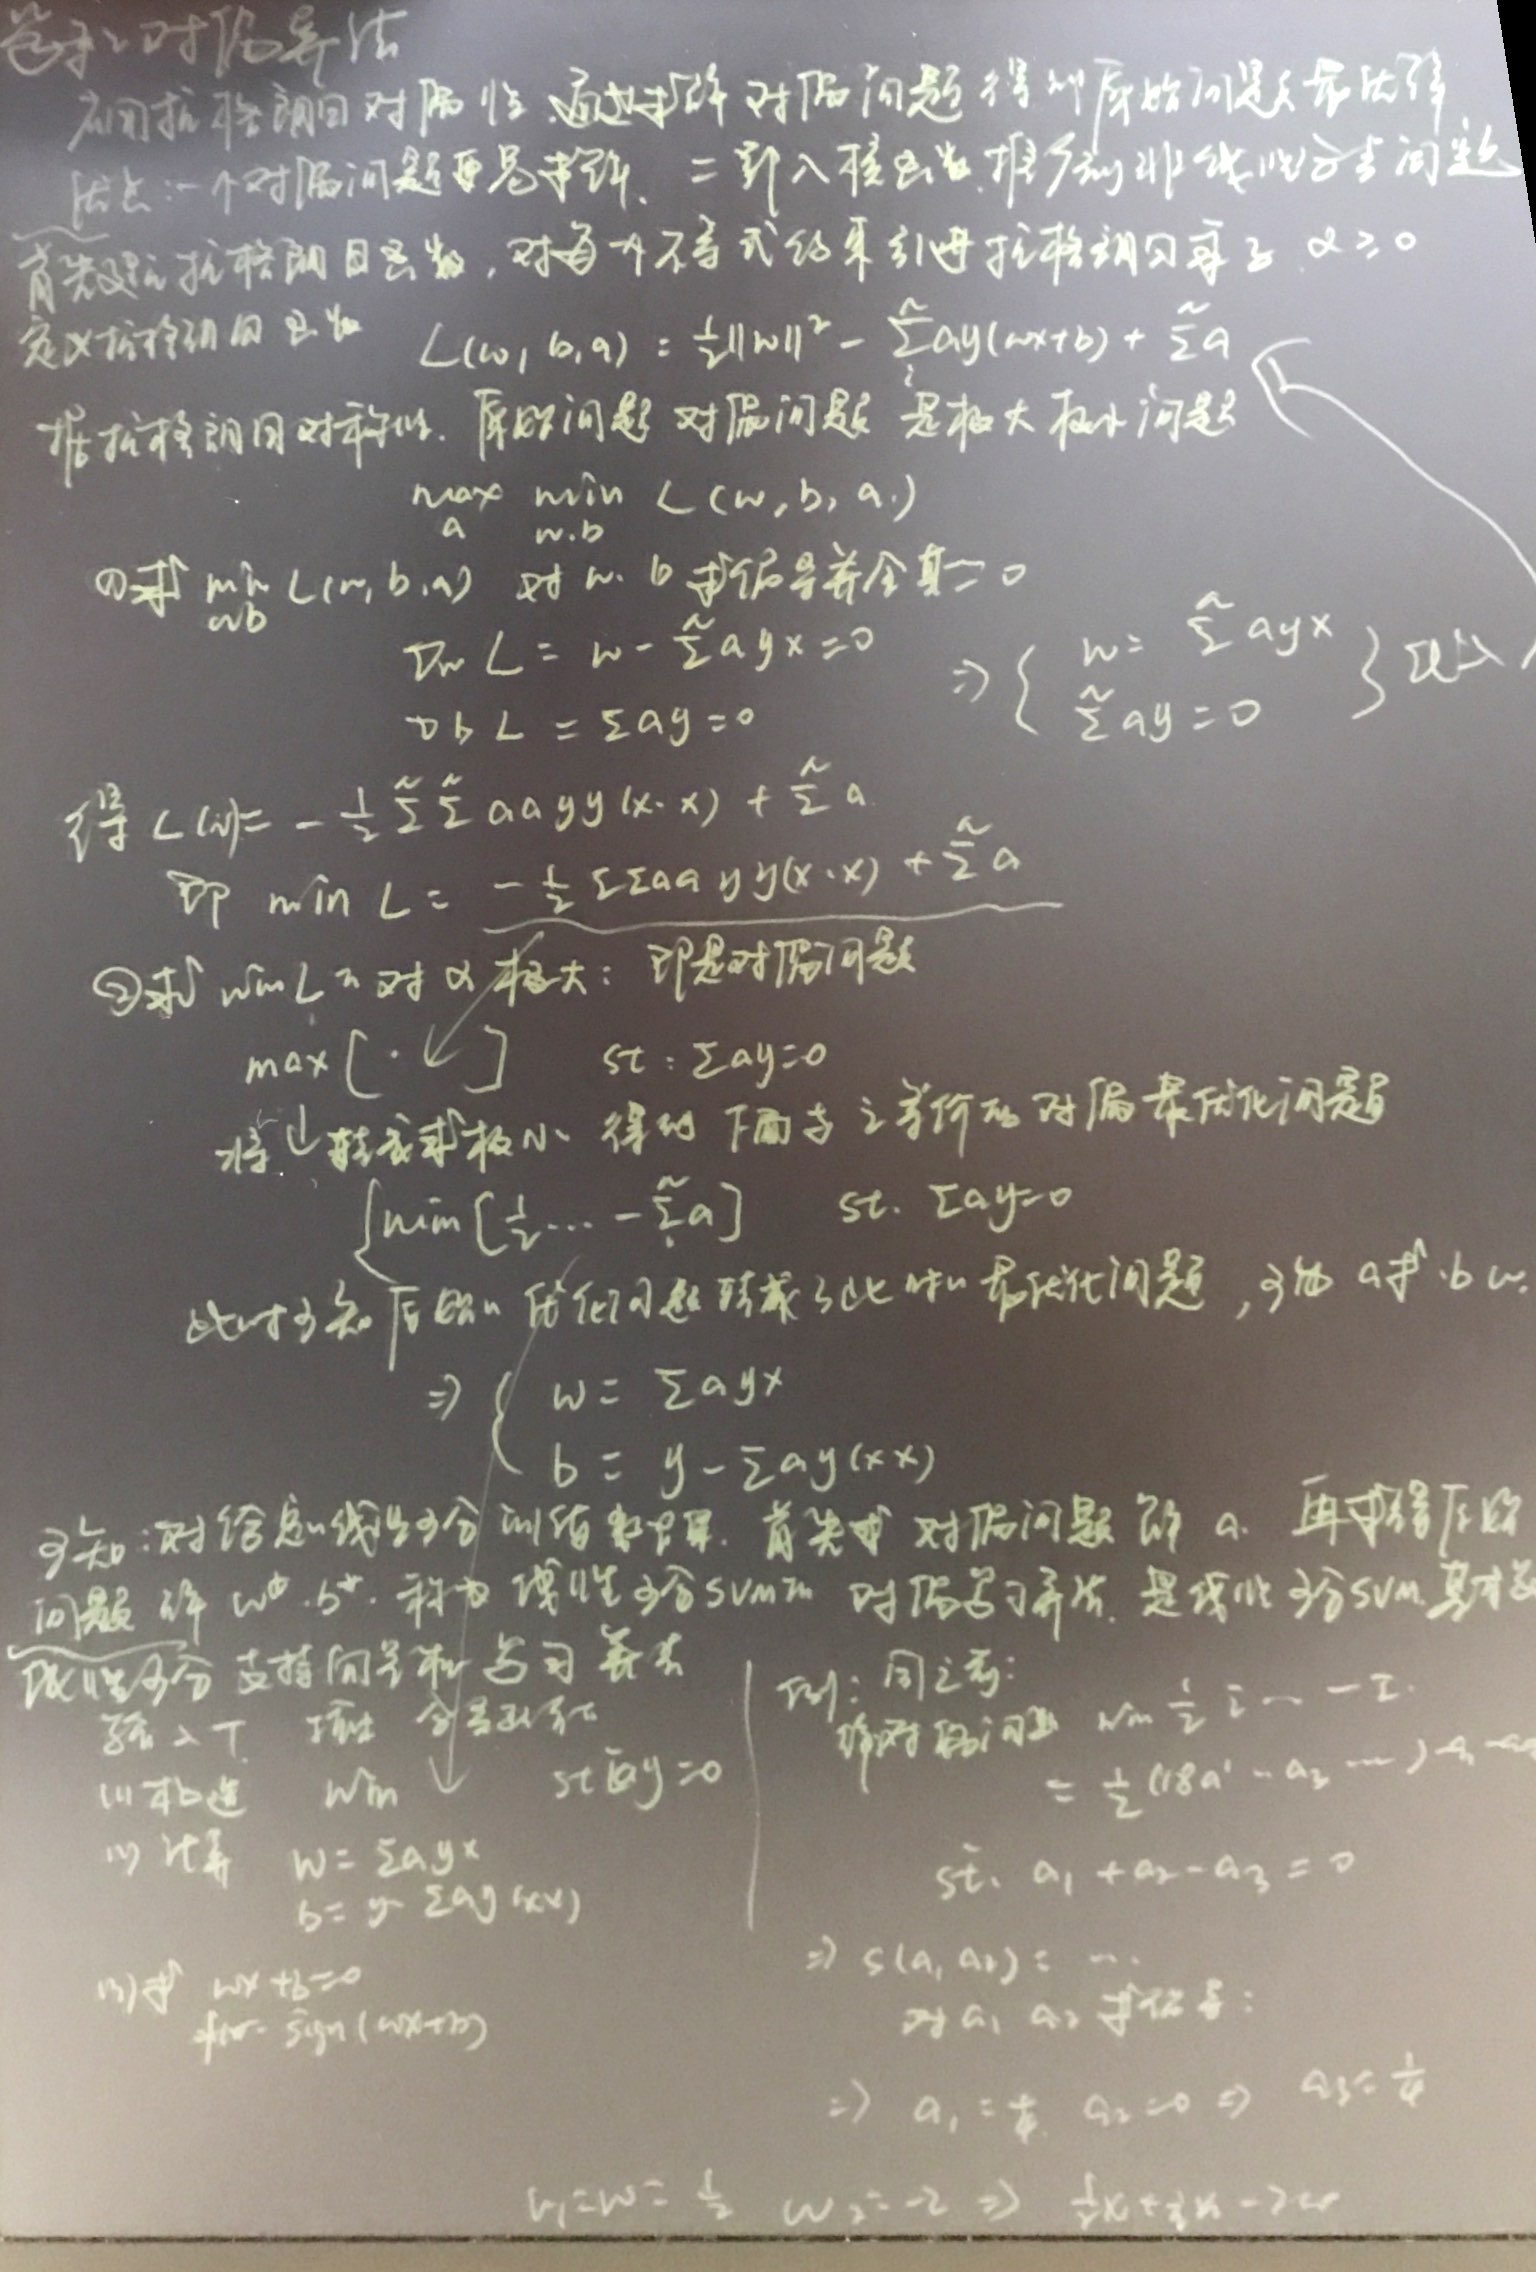 对偶算法
应用拉格朗日对偶性 通过求解对偶问题得到原始问题最优解
优点:一个对偶问题更易求解. 二引入核函数.推广到非线性分类问题
首先建立拉格朗日函数,对每个不等式约束引进拉格朗日乘子 α≥0
定义拉格朗日函数 L(w,b,a) = ½||w||² - Σay(wx+b) + Σa
据拉格朗日对称性. 原始问题对偶问题是极大极小问题
max min L(w,b,a)
a w.b
①求 min L(w,b,a) 对 w. b 求偏导并令其=0
wb
∇w L = w - Σayx=0
∇b L = Σay=0
⇒ { w= Σayx
Σay=0 } 代入
得 L(w)= - ½ΣΣaayy(x·x) + Σa
即 min L = - ½ΣΣaayy(x·x) + Σa
②求 min L 对α极大: 即是对偶问题
max[· ] st: Σay=0
将 转成求极小 得到下面与之等价的对偶最优化问题
{min[½... - Σa] st. Σay=0
此时可知原始优化问题转成了此时最优化问题,可由a求.b w.
⇒ { w= Σayx
b = y-Σay(xx)
可知:对给定线性可分训练数据集. 首先求对偶问题解 a. 再求得原始
问题解 w*.b*. 称为线性可分SVM 对偶学习算法. 是线性可分SVM.基本
线性可分支持向量机学习算法
输入T 输出 分离
(1)构造 min st Σay=0
(2) 计算 w=Σayx
b= y- Σay(xx)
(3)求 wx+b=0
f(x)= sign(wx+b)
例: 同之前:
解对偶问题 min ½ Σ... -Σ.
= ½(18a²-a₃...)
st. a₁+a₂-a₃=0
⇒ s(a₁a₂) = ...
对 a₁ a₂ 求偏导:
⇒ a₁=¼ a₂=0 ⇒ a₃=¼
w₁=w₂=½